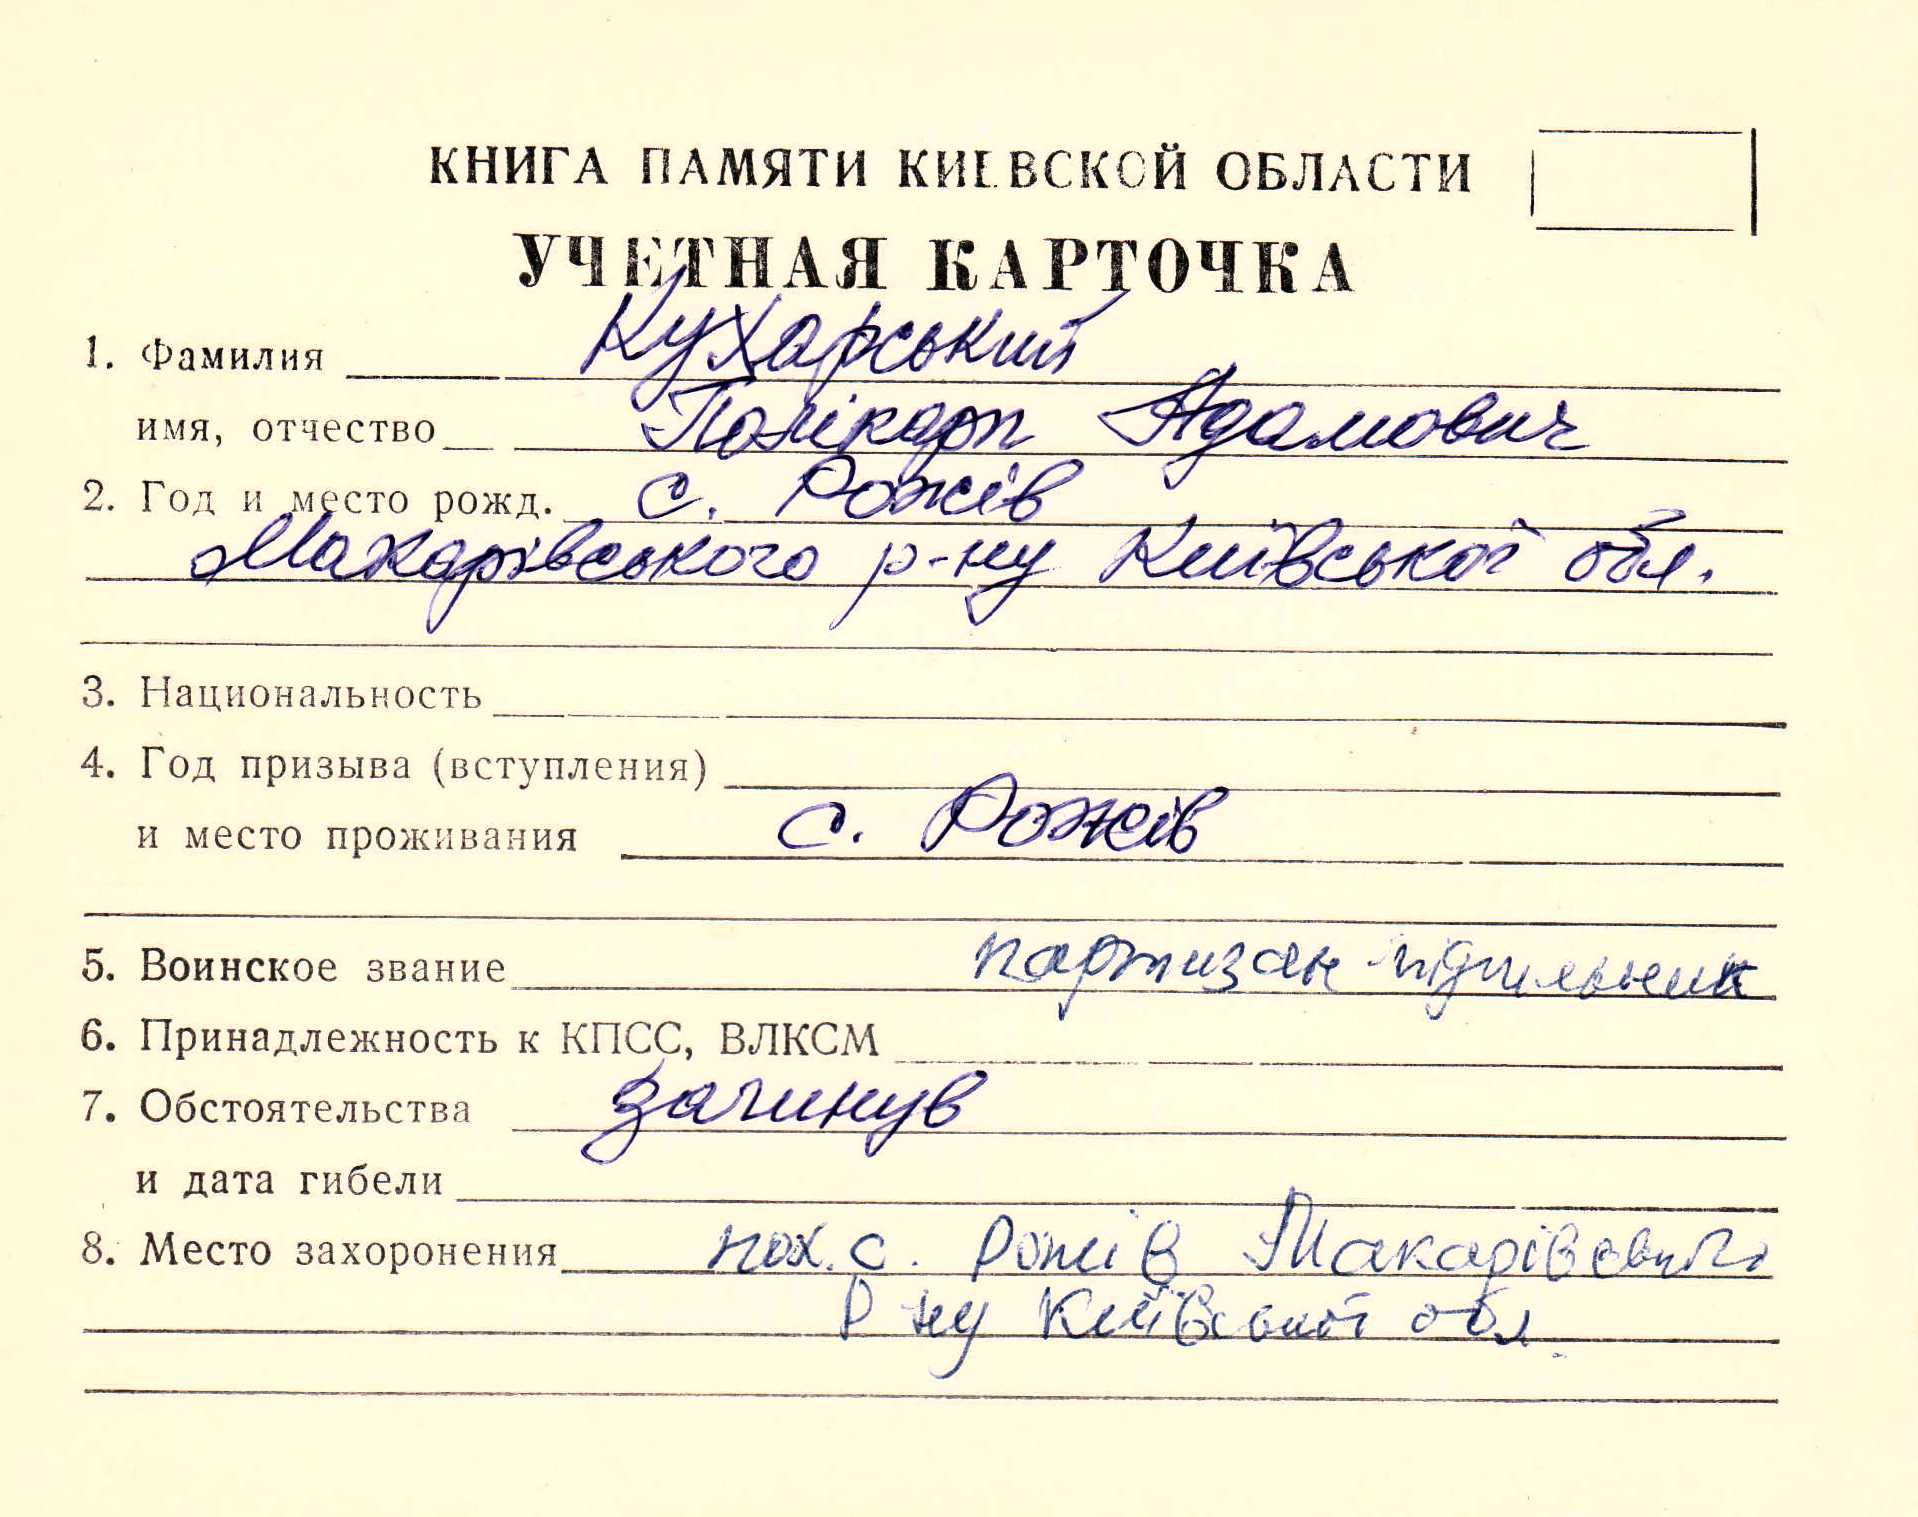 КНИГА ПАМЯТИ КИЕВСКОЙ ОБЛАСТИ
УЧЕТНАЯ КАРТОЧКА
1. Фамилия Кухарський
имя, отчество Полікарп Адамович
2. Год и место рожд. с. Рожів
Макарівського р-ну Київської обл.
3. Национальность
4. Год призыва (вступления)
и место проживания с. Рожів
5. Воинское звание партизан-підпільник
6. Принадлежность к КПСС, ВЛКСМ
7. Обстоятельства загинув
и дата гибели
8. Место захоронения пох. с. Рожів Макарівського
р-ну Київської обл.